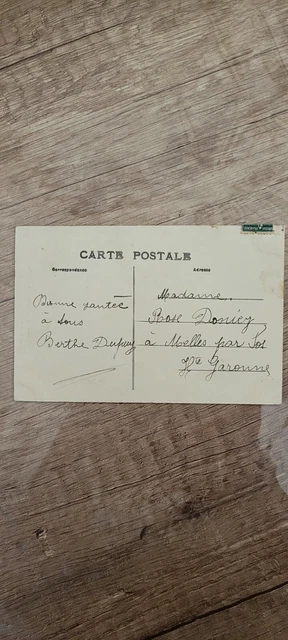 CARTE POSTALE
Correspondance
Adresse
Bonne santée
à tous
Berthe Dupuy
Madame
Rose Doniez
à Melles par Fos
Hte Garonne